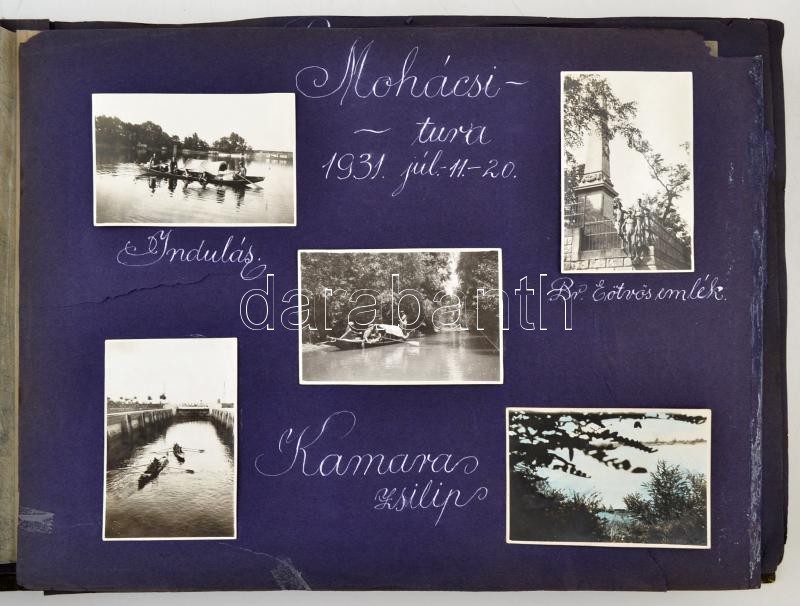 Mohácsi-
- tura
1931. júl.-11.-20.
Indulás.
Br. Eötvös emlék.
darabanth
Kamara
zsilip